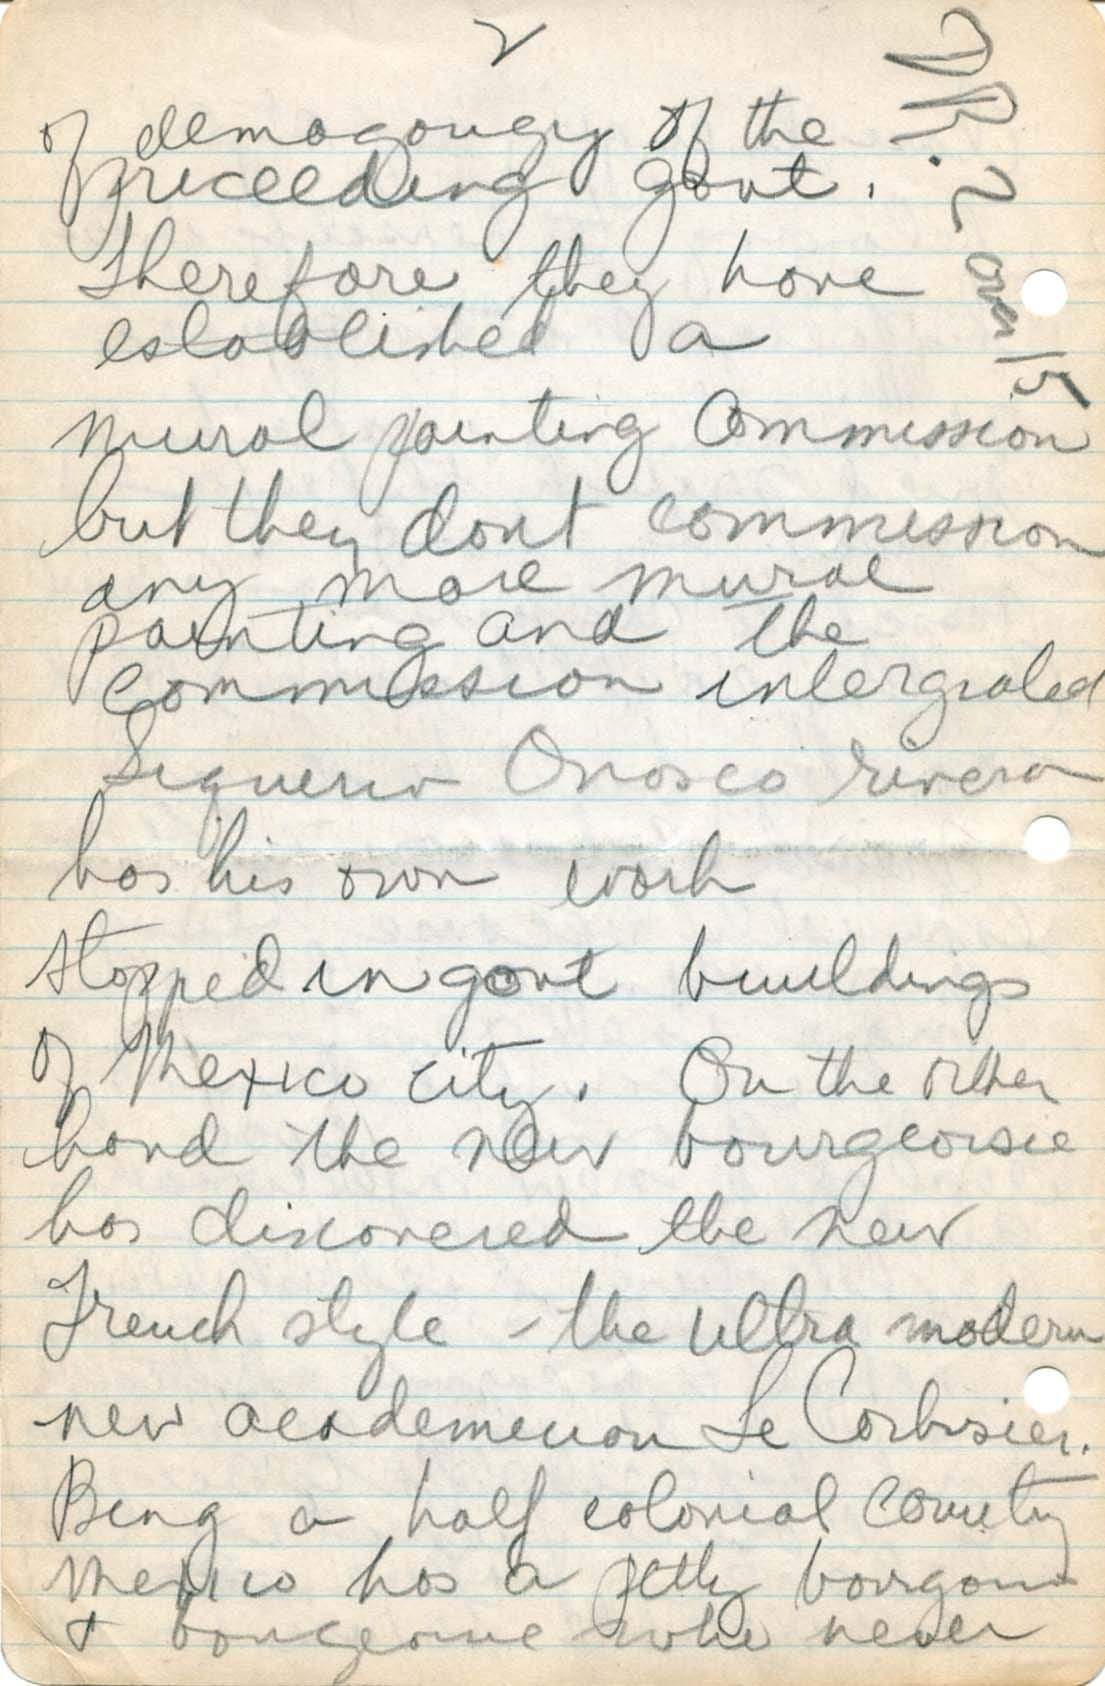 2
DR. 2 over 15
of demagougry of the
preceeding govt.
Therefore they have
established a
mural painting Commission
but they dont commission
any more mural
painting and the
commission intergrated
Siqueriv Orosco rivera
has his own work
stopped in govt buuldings
of Mexico city. On the other
hand the new bourgeoisie
has discovered the new
French style - the ultra modern
new academecian Le Corbusier.
Being a half colonial country
Mexico has a petty
& who never